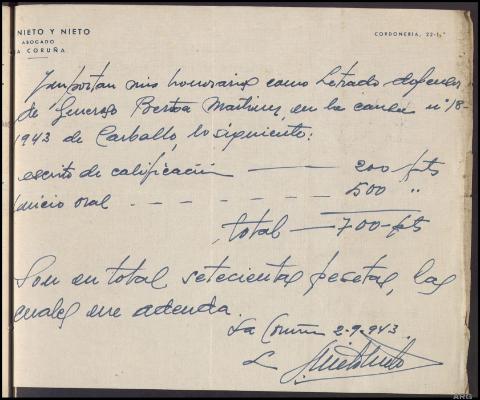 NIETO Y NIETO
ABOGADO
LA CORUÑA
CORDONERIA, 22-1.º
Importan mis honorarios como Letrado defensor
de Generoso Bertoa Martinez, en la causa nº 18-
1943 de Carballo, lo siguiente:
escrito de calificación —— 200 pts
juicio oral - - - - - - 500 "
total — 700 - pts
Son en total setecientas pesetas, las
cuales me adeuda.
La Coruña 2-9-943